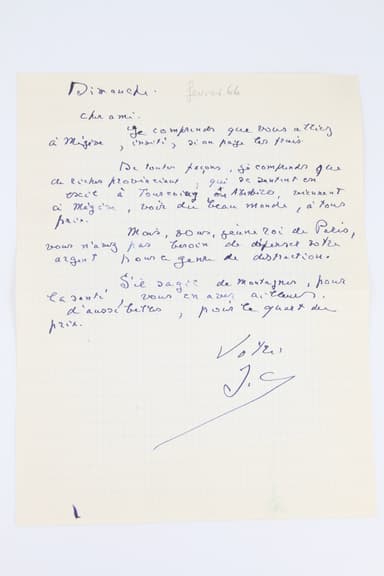 Dimanche. février 66
Cher ami.
Je comprends que vous alliez
à Mégève, invité, si on paye les frais.
De toutes façons, je comprends que
de riches provinciaux, qui se sentent en
exil à Tourcoing ou, viennent
à Mégève, voir du beau monde, à tous
prix.
Mais, vous, jeune roi de Paris,
vous n'avez pas besoin de dépenser votre
argent pour ce genre de distraction.
S'il s'agit de montagnes, pour
la santé, vous en avez ailleurs.
d'aussi belles, pour le quart du
prix.
Votre
J.C